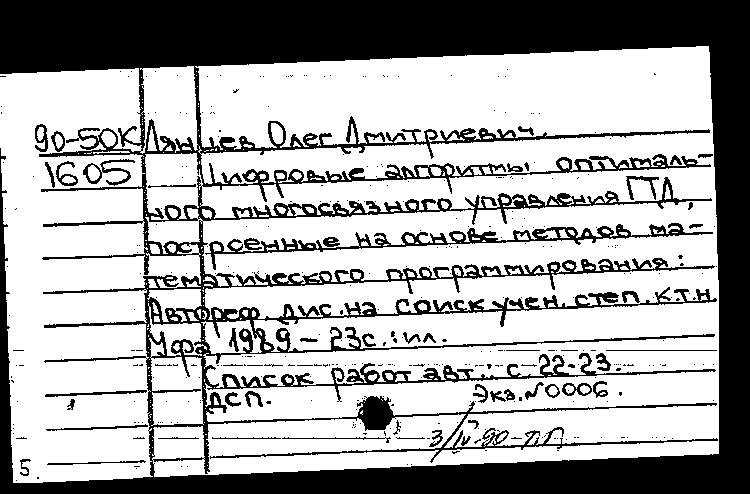 90-50К Лянцев, Олег Дмитриевич.
1605 Цифровые алгоритмы оптималь-
ного многосвязного управления ГТД,
построенные на основе методов ма-
тематического программирования:
Автореф. дис. на соиск учен. степ. к.т.н.
Уфа, 1989.- 23с.:ил.
Список работ авт.: с. 22-23.
ДСП. Экз. №0006.
3/IV-90-
5.